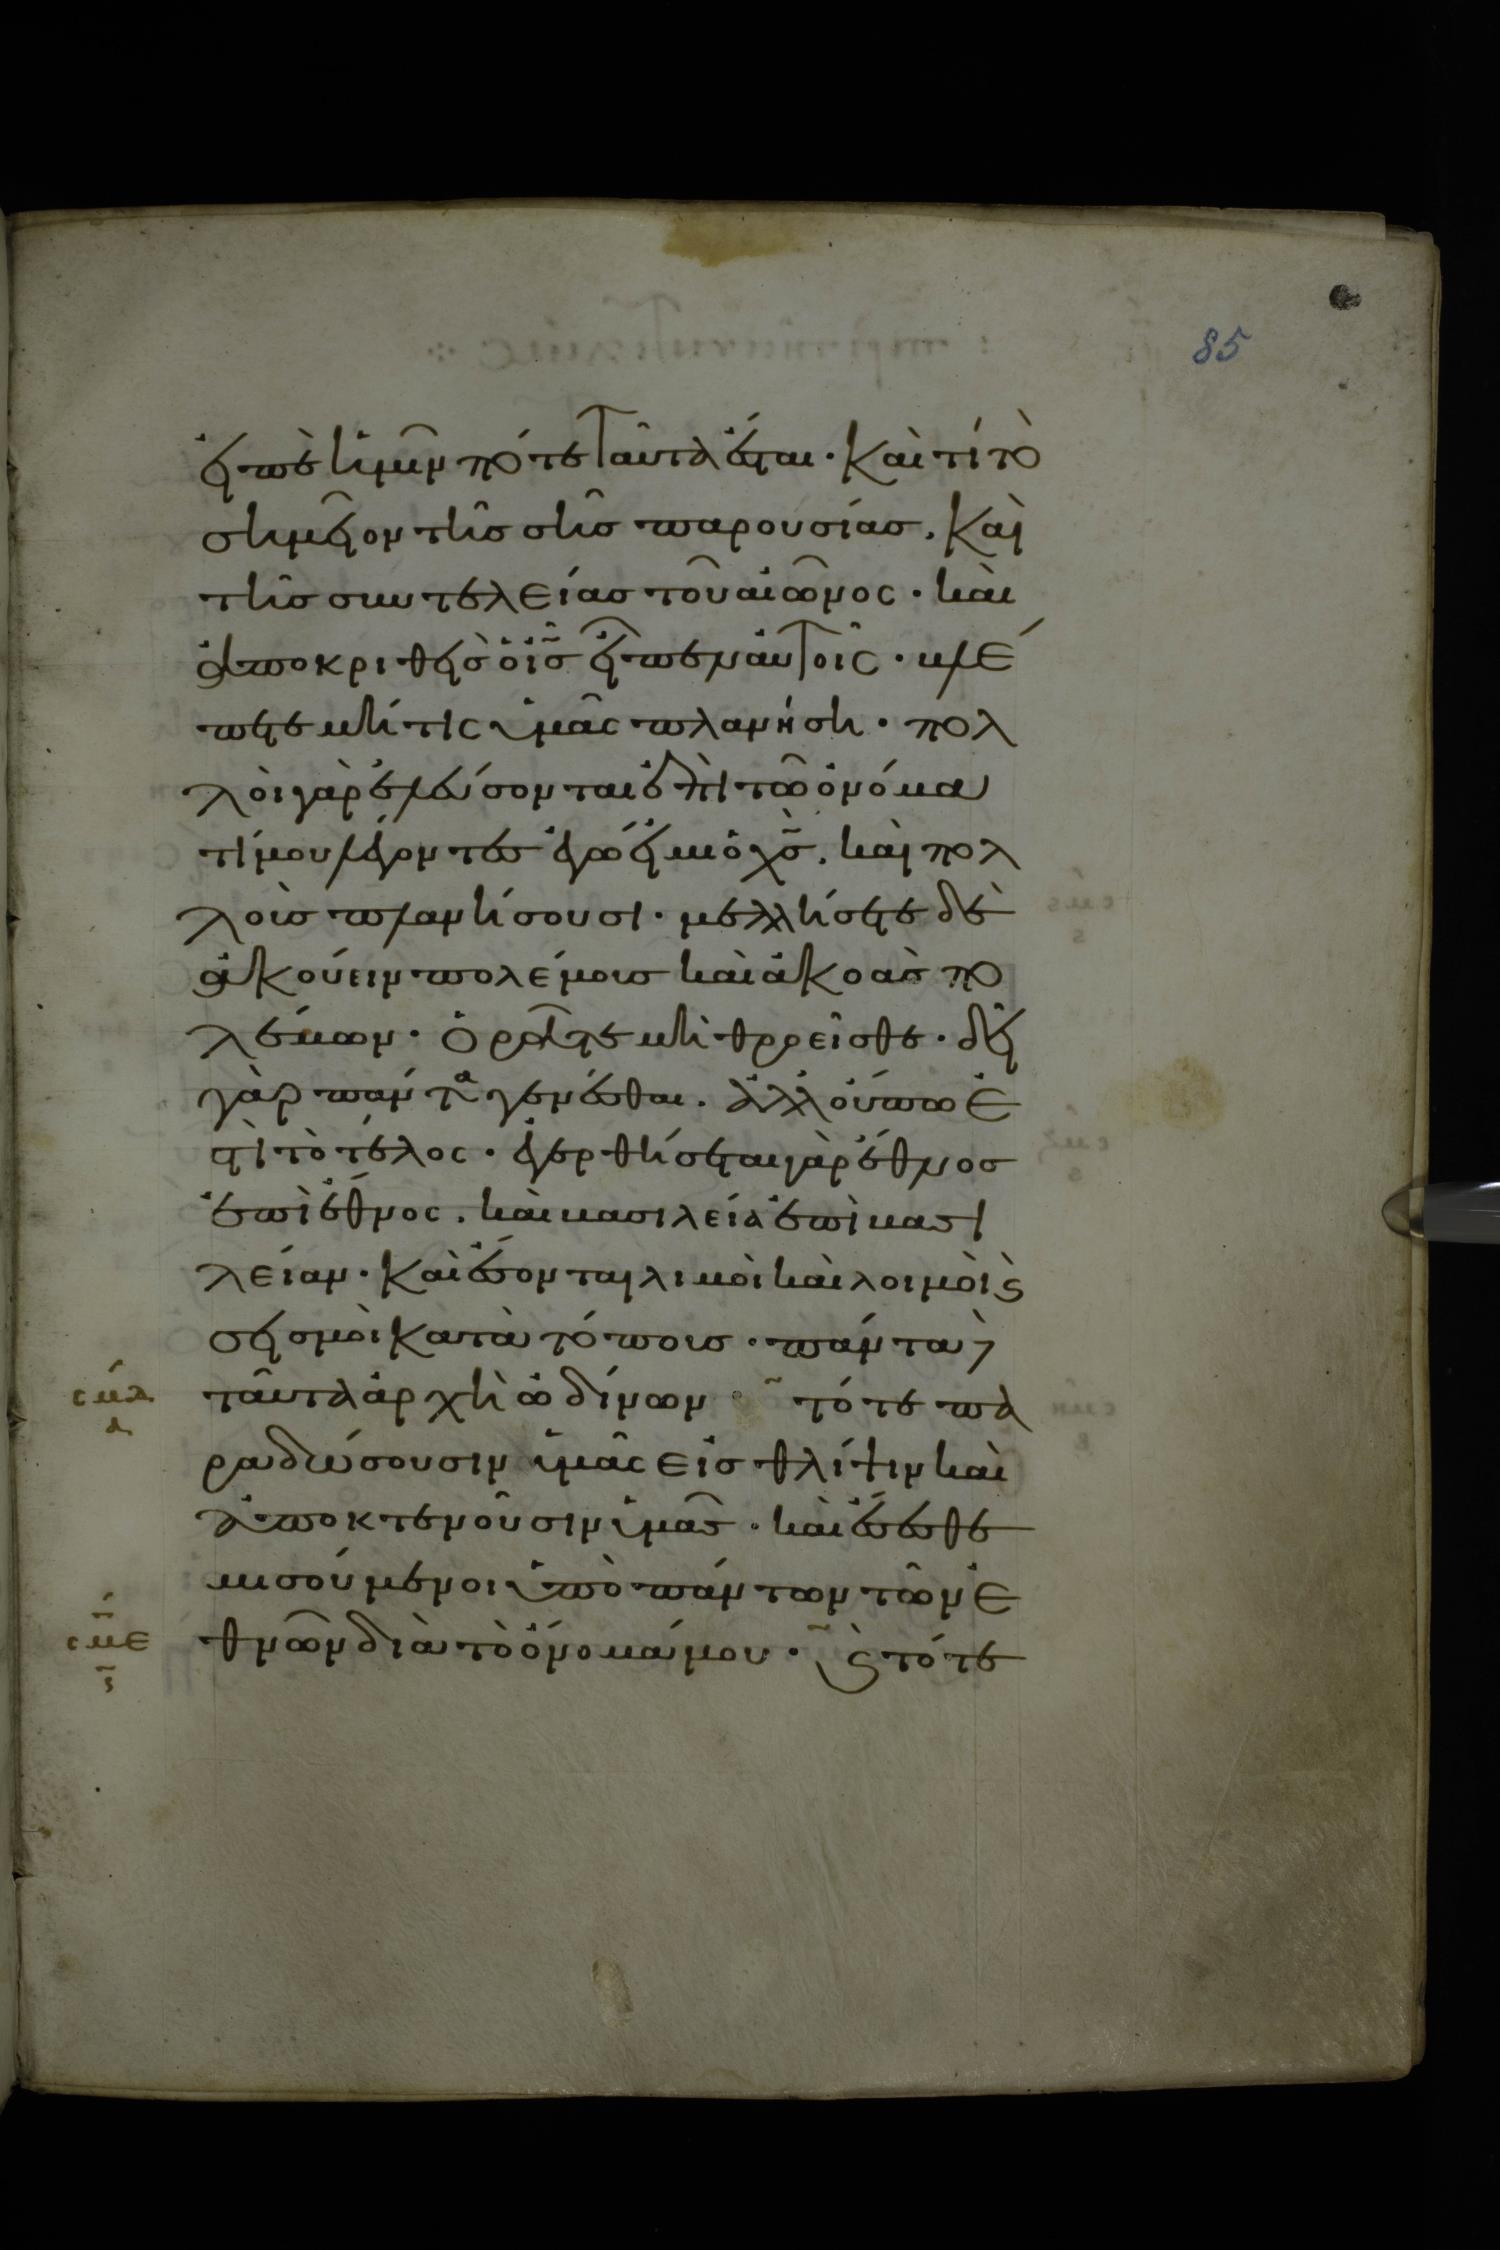 85
εἰπὲ ἡμῖν πότε ταῦτα ἔσται · καὶ τί τὸ
σημεῖον τῆς σῆς παρουσίας , καὶ
τῆς συντελείας τοῦ αἰῶνος · καὶ
ἀποκριθεὶς ὁ ἰς̅ εἶπεν αὐτοῖς · βλέ
πετε μή τις ὑμᾶς πλανήση · πολ
λοὶ γὰρ ἐλεύσονται ἐπὶ τῶ ὀνόμα
τί μου λέγοντες ἐγώ εἰμι ὁ χς̅ , καὶ πολ
λοὺς πλανήσουσι · μελλήσετε δὲ
ἀκούειν πολέμους καὶ ἀκοὰς πο
λέμων · ὁρᾶτε μὴ θροεῖσθε · δεῖ
γὰρ πάντα γενέσθαι . ἀλλ οὔπω ἐ
στὶ τὸ τέλος · ἐγερθήσεται γὰρ ἔθνος
ἐπὶ ἔθνος , καὶ βασιλεία ἐπὶ βασι
λείαν · καὶ ἔσονται λιμοὶ καὶ λοιμοὶ ϗ
σεισμοὶ κατὰ τόπους · πάντα δὲ
σμδ ταῦτα ἀρχὴ ὠδίνων τότε πα
α
ραδώσουσιν ὑμᾶς εἰς θλίψιν καὶ
ἀποκτενοῦσιν ὑμᾶς · καὶ ἔσεσθε
μισούμενοι ὑπὸ πάντων τῶν ἐ
σμε θνῶν διὰ τὸ ὄνομά μου · ϗ τότε
ϛ